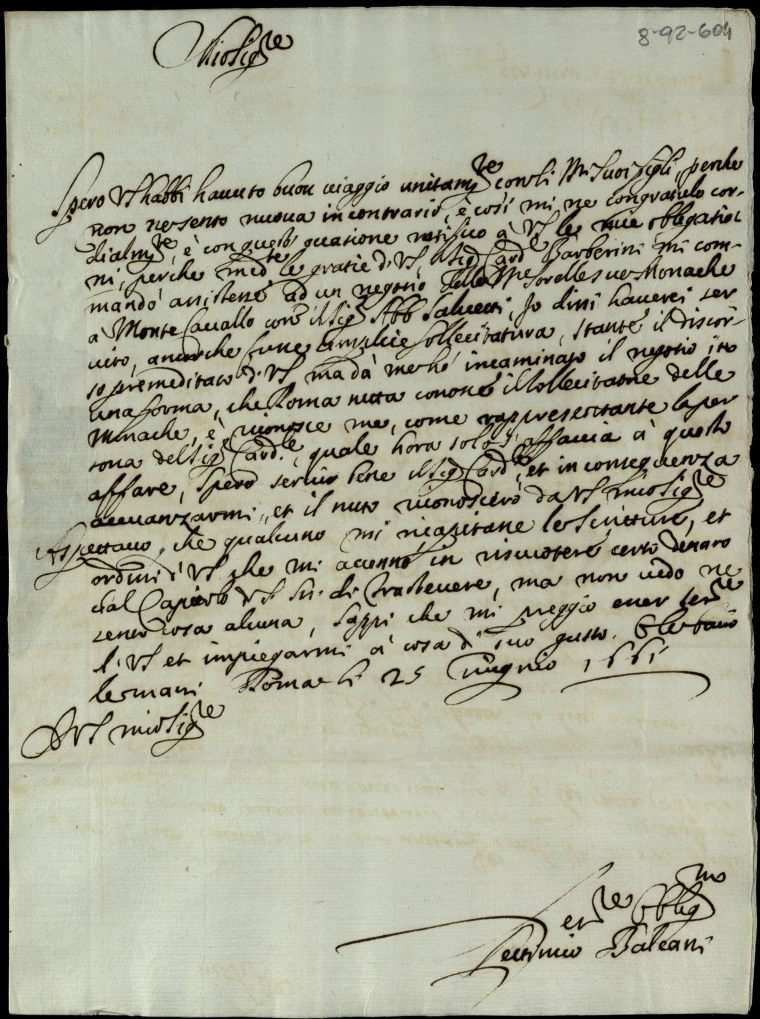 8-92-604
Mio Sig.re
Spero VS habbi havuto buon viaggio unitam.te con li Suoi figli, perche
non ne sento nuova in contrario, è così mi ne congratulo cor-
dialm.te, è con questa VS le mie obligatio
ni, perche med.te le gratie di VS, il Sig.r Card.le Barberini mi com-
mandò assistere ad un negotio delle Sorelle sue Monache
à Monte Cavallo con il Sig.r Abb. Salvetti, Io dissi haverei ser
vito, ancorche fusse simplice sollecitatura, stante il discor-
so premeditato di VS ma dà che hò incaminato il negotio, in
una forma, che Roma tutta conosce il sollecitatore delle
Monache, è riconosce me, come rappresentante la per
sona del Sig.r Card.le, quale hora solo s'affaccia à questo
affare, spero servir bene il Sig.r Card.le, et in consequenza
avvanzarmi, et il tutto riconoscerò da VS mio Sig.re
Aspettavo, che qualcuno mi ricapitasse le Scritture, et
ordini di VS che mi accennò in riscuotere certo denaro
dal Capitolo di Trastevere, ma non vedo ne
sento cosa alcuna, Sappi che mi preggio esser ser.re
di VS et impiegarmi à cosa di suo gusto. E le bacio
le mani Roma li 25 Giugnio 1661
Di VS mio Sig.re
Ser.re Oblig.mo
Baleani